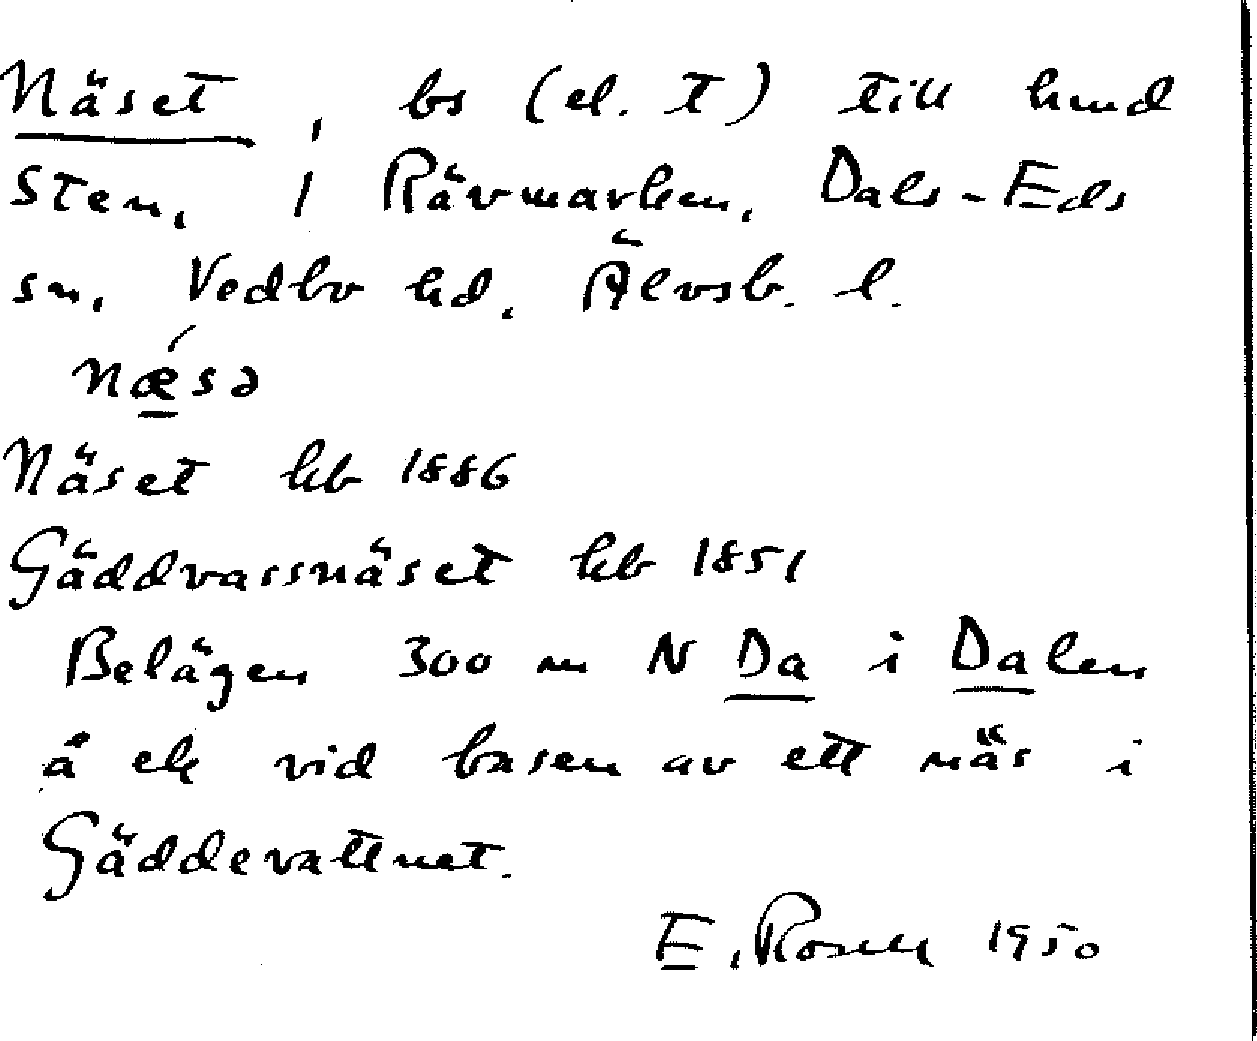 Näset, bs (el. t) till hmd
Sten, i Rävmarken, Dals-Eds
sn, Vedbo hd, Älvsb. l.
nǽsə
Näset hb 1886
Gäddvassnäset hb 1851
Belägen 300 m N Da i Dalen
å ek vid basen av ett näs i
Gäddevattnet.
E. Rosell 1950